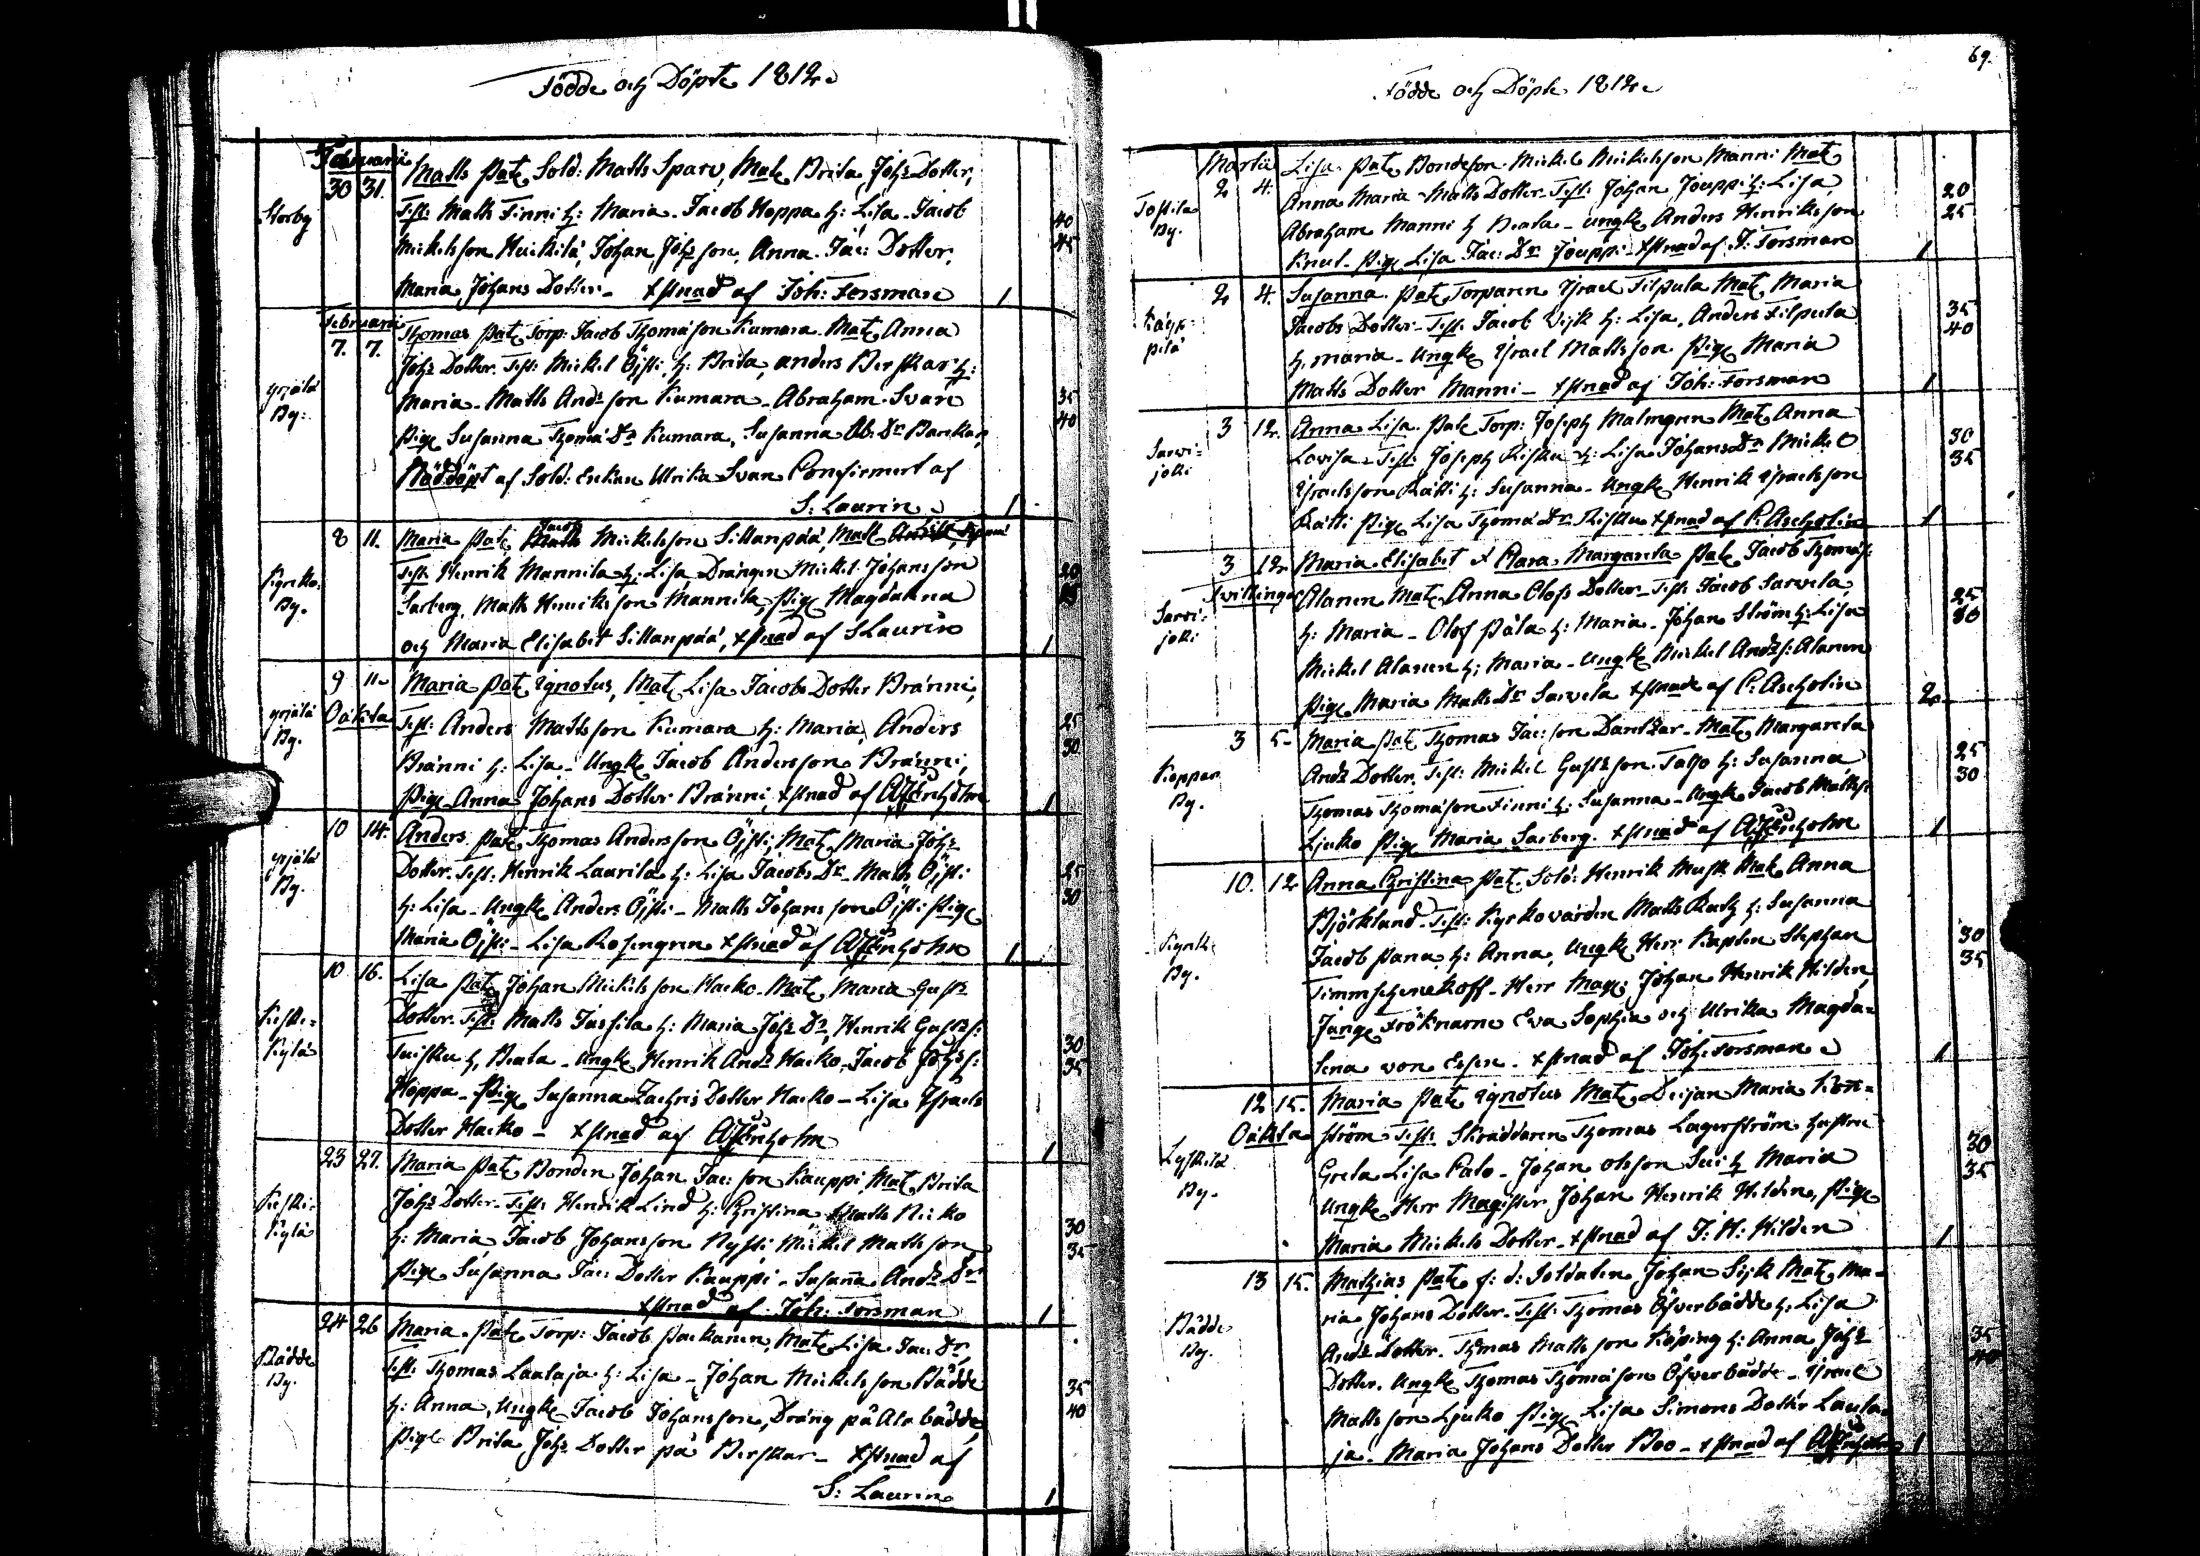 Födde och Döpte 1812.
Februarii
30 31. Matts Pat. Sold: Matts Sparv, Mat. Brita Johs Dotter,
Storby Test: Matts Finni h: Maria. Jacob Hoppa h: Lisa. Jacob 40
Mickelsson Heickilä, Johan Johs son, Anna Jac: Dotter, 45
Maria Johans Dotter. Xstnad af Joh: Forsman 1
Februarii
7. 7. Thomas Pat. Torp: Jacob Thomasson Kumara. Mat. Anna
Johs Dotter. Test: Mickel Öjsti, h: Brita, Anders Berskar h:
Yrjälä Maria. Matts Ands son Kumara. Abraham Svan 35
By: Pig. Susanna Thoma Dr Kumara, Susanna Ab: Dr 40
Nöddöpt af Sold: Enkan Ulrika Svan Confirmert af
S: Laurin 1
8 11. Maria Pat. Jacob Mickelsson Sillanpää, Mat.
Kyrko Test: Henrik Mannila h: Lisa Drängen Mickel Johansson 20
By. Sarberg, Matts Henriksson Mannila, Pig. Magdalena
och Maria Elisabet Sillanpää, Xstnad af S Laurin 1
9 11. Maria Pat. Ignotus, Mat. Lisa Jacobs Dotter Bränni,
Yrjälä Oäkta Test: Anders Mattsson Kumara h: Maria, Anders 25
By. Bränni h: Lisa. Ungk. Jacob Andersson Bränni, 30
Pig. Anna Johans Dotter Bränni, Xstnad af 1
10 14. Anders Pat. Thomas Andersson Öjsti, Mat. Maria Johs
Yrjälä Dotter. Test: Henrik Laurila h: Lisa Jacobs Dr. Matts Öjsti 25
By. h: Lisa. Ungk. Anders Öjsti. Matts Johans son Öjsti Pig. 30
Maria Öjsti. Lisa Rosengren Xstnad af 1
10 16. Lisa Pat. Johan Mickelsson Hacko. Mat. Maria Gusts
Keski= Dotter. Test: Matts Jussila h: Maria Johs Dr, Henrik Gusts s: 30
Kylä Tuisku h, Beata. Ungk. Henrik Ands Hacko, Jacob Johs s: 35
Hoppa. Pig. Susanna Zachris Dotter Hacko. Lisa Israels
Dotter Hacko. Xstnad af 1
23 27. Maria Pat. Bonden Johan Jac: son Kauppi Mat. Brita
Keski= Johs Dotter. Test: Henrik Lind h: Christina Matts Nicko
Kylä h: Maria Jacob Johansson Nysti Mickel Mattsson 30
Pig. Susanna Jac: Dotter Kauppi. Susana Ands Dr 35
Xstnad af Joh: Forsman 1
24 26 Maria. Pat. Torp: Jacob Packanen, Mat. Lisa Jac: Dr,
Bådde Test: Thomas Lautaja h: Lisa. Johan Mickelsson Bådde 35
By. h: Anna, Ungk. Jacob Johansson, Dräng på Ala bådde, 40
Pig. Brita Johs Dotter på Berskar. Xstnad af
S: Laurin 1
69.
Födde och Döpte 1812.
Martii Lisa Pat. Bondeson Mickel Mickelsson Manni Mat.
2 4. Anna Maria Matts Dotter. Test: Johan Jouppi h: Lisa, 20
Tossila Abraham Manni h Beata. Ungk. Anders Henriksson 25
By. Knut. Pig. Lisa Jac: Dr Jouppi. Xstnad af J: Forsman 1
2 4. Susanna Pat. Torparen Israel Filpula Mat. Maria
Jacobs Dotter. Test: Jacob Vijk h: Lisa, Anders Filpula 35
pilä h, Maria. Ungk. Israel Mattsson. Pig. Maria 40
Matts Dotter Manni. Xstnad af Joh: Forsman 1
3 12. Anna Lisa. Pat. Torp: Joseph Malmgren Mat. Anna
Sarvi= Lovisa. Test: Joseph Risku h: Lisa Johans Dr Mickel 30
joki Israelsson Rätti h: Susanna. Ungk. Henrik Israelsson 35
Rätti Pig. Lisa Thoma Dr Risku Xstnad af P: Ascholin 1
3 12. Maria Elisabet & Clara Margareta Pat. Jacob Thomas s:
Tvillingar Alanen Mat. Anna Olofs Dotter. Test: Jacob Sarvela, 25
Sarvi= h: Maria. Olof Påla h: Maria. Johan Ström h: Lisa 30
joki Mickel Alanen h: Maria. Ungk. Mickel Ands s: Alanen
Pig. Maria Matts Dr Sarvela Xstnade af P: Ascholin 2
3 5. Maria Pat. Thomas Jac: son Dantzar. Mat. Margareta
Ands Dotter. Test: Mickel Gusts son Talso h: Susanna 25
By. Thomas Thomasson Finni h: Susanna. Ungk. Jacob Matts s: 30
Ljuko Pig. Maria Sarberg. Xstnad af 1
10. 12 Anna Christina Pat. Sold: Henrik Musk Mat. Anna
Björklund. Test: Kyrkovärden Matts Rutz h: Susanna
Kyrko Jacob Pana h: Anna, Ungk. Herr Kapten Stephan 30
By. Timmschenkoff. Herr Mag: Johan Henrik Hilden, 35
Jungf. Fröknarne Eva Sophia och Ulrika Magda=
lena von Essen. Xstnad af Joh: Forsman 1
12 15. Maria Pat. Ignotus Mat. Deijan Maria Kon=
Oäkta ström Test: Skräddaren Thomas Lagerström hustru
Greta Lisa Palo. Johan Olsson Sui h Maria 30
By. Ungk. Herr Magister Johan Henrik Hilden, Pig. 35
Maria Mickels Dotter. Xstnad af J: H: Hilden 1
13 15. Mathias Pat. f: d: Soldaten Johan Sijk Mat. Ma=
ria Johans Dotter. Test: Thomas Öfverbådde h: Lisa
Bådde Ands Dotter. Thomas Mattsson Köping h: Anna Johs 35
By. Dotter. Ungk. Thomas Thomasson Öfverbådde. Israel 40
Mattsson Ljuko Pig. Lisa Simons Dotter Lauta=
ja. Maria Johans Dotter Boo. Xstnad af 1